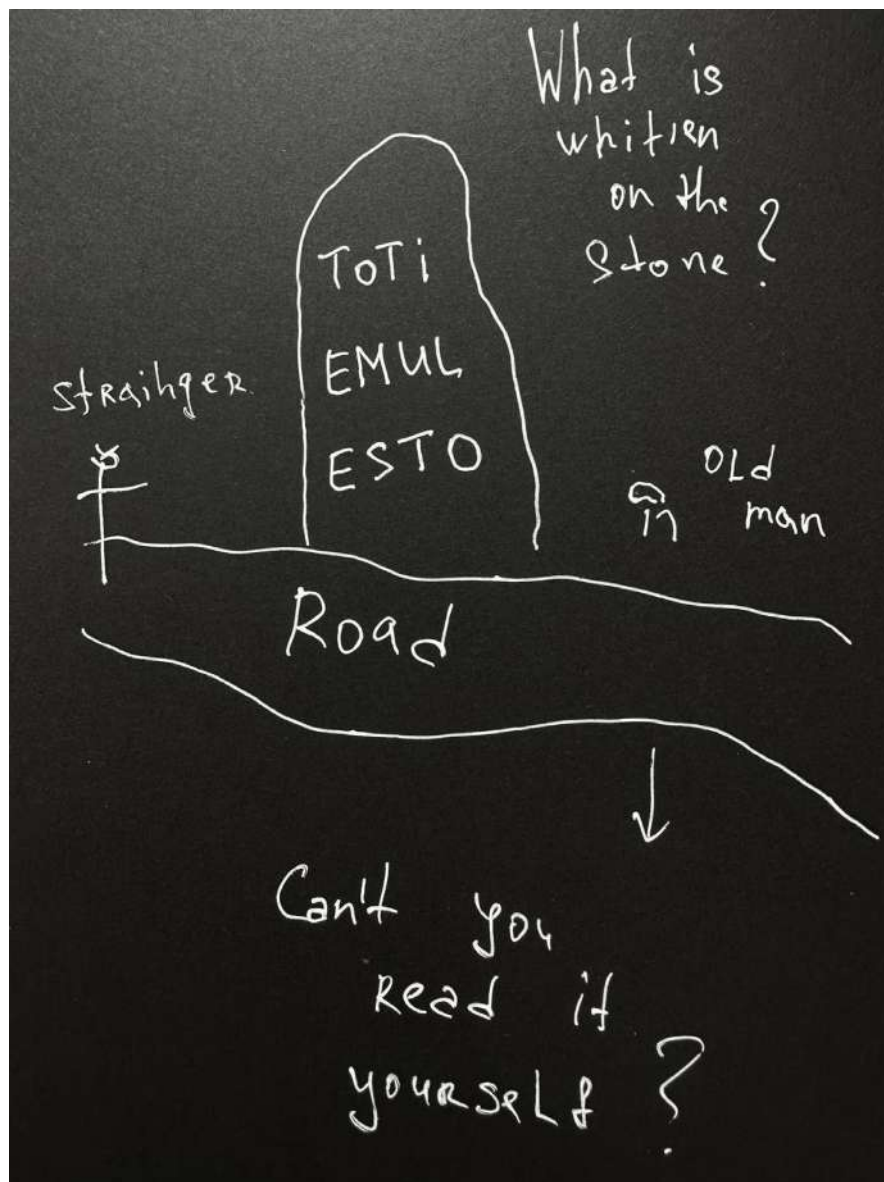 What is
whitten
on the
stone?
ToTi
EMUL
ESTO
strainger
old
man
Road
Can't you
Read it
yourself?